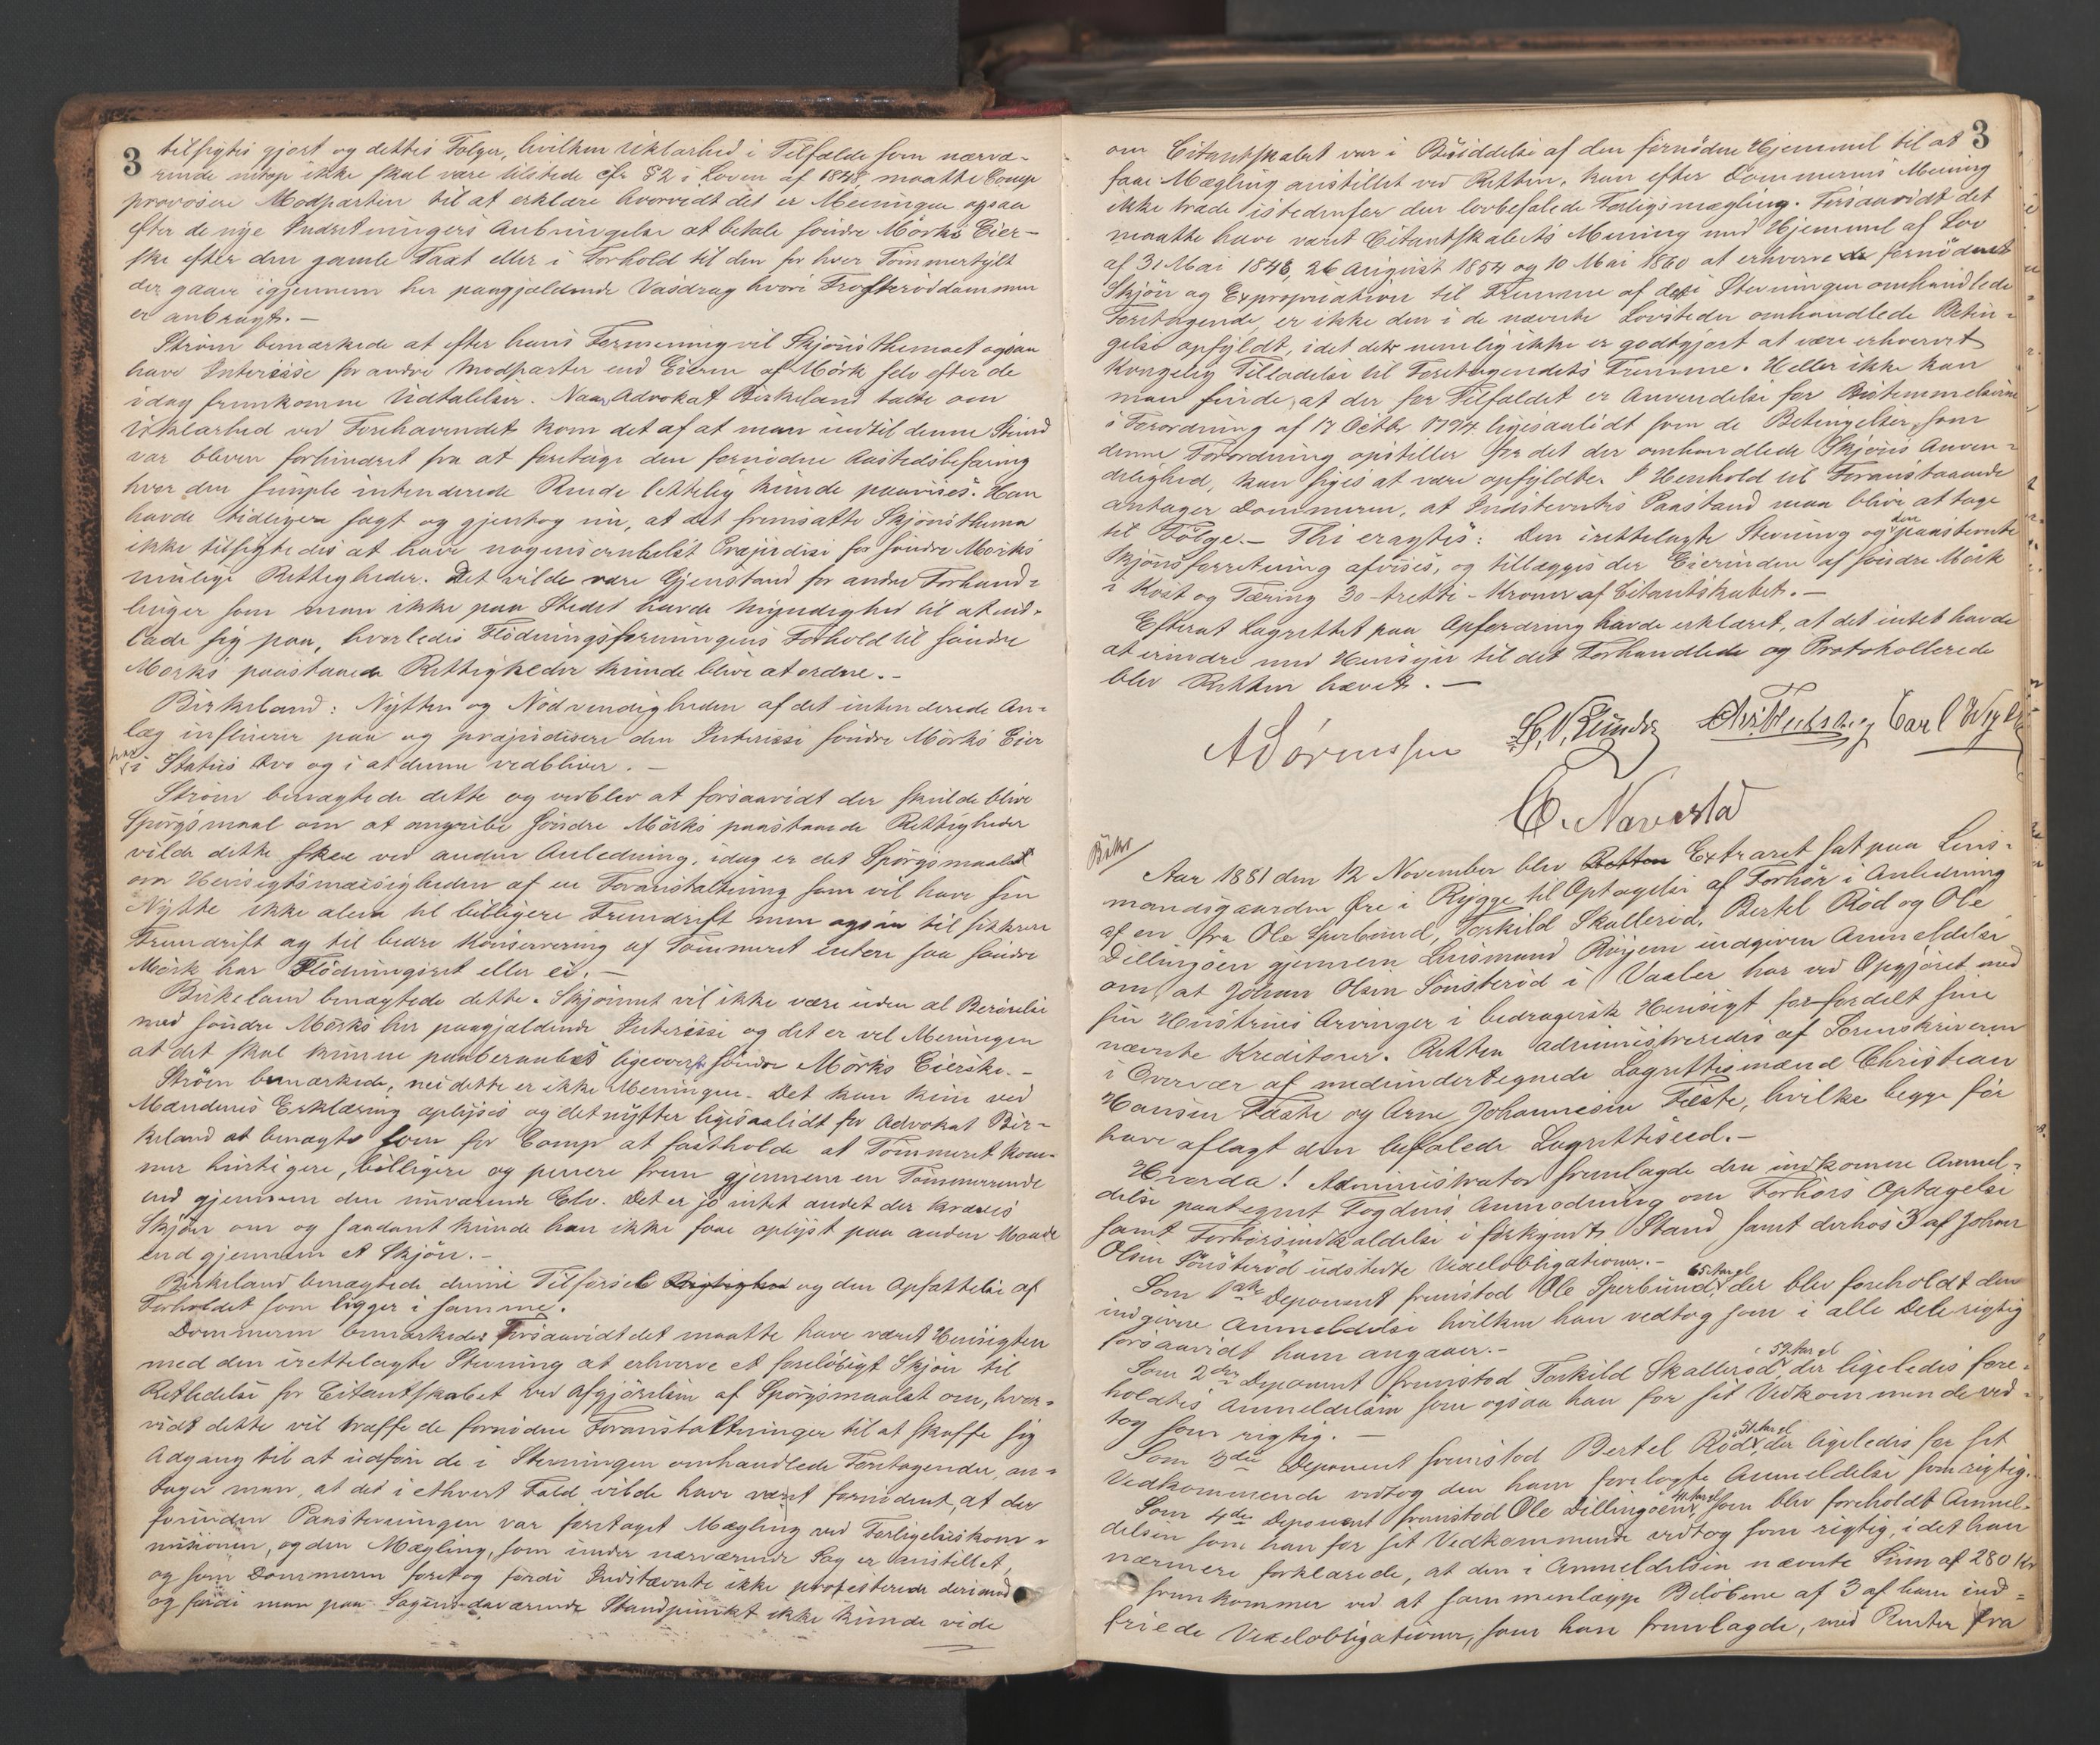 3
tilsigtes gjort og dettes Følger, hvilken Uklarhed i Tilfælde som nærvæ-
rende netop ikke skal være tilstede cfr §2 i Loven af 1848, maatte Comp
provosere Modparten til at erklære hvorvidt det er Meningen ogsaa
efter de nye Indretningers Anbringelse at betale søndre Mørks Eier-
ske efter den gamle Taxt eller i Forhold til den for hver Tømmertylt
der gaar igjennem her paagjældende Vasdrag hvori Trosterøddammen
er anbragt.-
Strøm bemærkede at efter hans Formening vil Skjønsthemaet ogsaa
have Interesse for andre Modparter end Eieren af Mørk selv efter de
idag fremkomne Udtalelser. Naar Advokat Birkeland talte om
Uklarhed ved Forehavendet kom det af at man indtil denne Stund
var bleven forhindret fra at foretage den fornødne Aastedsbefaring
hvor den simple intenderede Rende lettelig kunde paavises. Han
havde tidligere sagt og gjentog nu, at det fremsatte Skjønsthema
ikke tilsigtedes at have nogensomhelst Præjudice for søndre Mørks
mulige Rettigheder. Det vilde være Gjenstand for andre Forhand-
linger som man ikke paa Stedet havde Myndighed til at ind-
lade sig paa, hvorledes Flødningsforeningens Forhold til søndre
Mørks paastaaede Rettigheder kunde blive at ordne.-
Birkeland: Nytten og Nødvendigheden af det intenderede An-
læg influerer paa og præjudicere den Interesse søndre Mørks Eier
har
i Status Qvo og i at denne vedbliver.-
Strøm benægtede dette og vedblev at forsaavidt der skulde blive
Spørgsmaal om at angribe søndre Mørks paastaaede Rettigheder
vilde dette skee ved anden Anledning, idag er det Spørgsmaalet
om Hensigtsmæssigheden af en Foranstaltning som vil have sin
Nytte ikke alene til billigere Fremdrift men ogsaa til sikkrere
Fremdrift og til bedre Konservering af Tømmeret enten saa søndre
Mørk har Flødningsret eller ei.-
Birkeland benægtede dette. Skjønnet vil ikke være uden al Berørelse
med søndre Mørks her paagjældende Interesse og det er vel Meningen
at det skal kunne paaberaabes ligeoverfor søndre Mørks Eierske.-
Strøm bemærkede, nei dette er ikke Meningen. Det kan kun ved
Mændenes Erklæring oplyses og det nytter ligesaalidt for Advokat Bir-
keland at benægte som for Comp at fastholde at Tømmeret kom-
mer hurtigere, billigere og penere frem gjennem en Tømmerrende
end gjennem den nuværende Elv. Det er jo intet andet der kræves
Skjøn om og saadant kunde han ikke faae oplyst paa anden Maade
end gjennem et Skjøn.-
Birkeland benægtede denne Tilførsels Rigtighed og den Opfattelse af
Forholdet som ligger i samme.
Dommeren bemærkede: Forsaavidt det maatte have været Hensigten
med den irettelagte Stevning at erhverve et foreløbigt Skjøn til
Retledelse for Citantskabet ved Afgjørelsen af Spørgsmaalet om, hvor-
vidt dette vil træffe de fornødne Foranstaltninger til at skaffe sig
Adgang til at udføre de i Stevningen omhandlede Foretagender, an-
tager man, at det i ethvert Fald vilde have været fornødent, at der
forinden Paastevningen var foretaget Mægling ved Forligelseskom-
missionen, og den Mægling, som under nærværende Sag er anstillet,
og som Dommeren foretog fordi Indstævnte ikke protesterede derimod
og fordi man paa Sagens daværende Standpunkt ikke kunde vide
3
om Citantskabet var i Besiddelse af den fornødne Hjemmel til at
faae Mægling anstillet ved Retten, kan efter Dommerens Mening
ikke træde istedenfor den lovbefalede Forligsmægling. Forsaavidt det
maatte have været Citantskabets Mening med Hjemmel af Lov
af 31 Mai 1848, 26 August 1854 og 10 Mai 1860 at erhverve de fornødne
Skjøn og Expropriation til Fremme af det i Stevningen omhandlede
Foretagende, er ikke den i de nævnte Lovsteder omhandlede Betin-
gelse opfyldt, idet det nemlig ikke er godtgjort at være erhvervet
Kongelig Tilladelse til Foretagendets Fremme. Heller ikke kan
man finde, at der for Tilfældet er Anvendelse for Bestemmelserne
i Forordning af 17 Octbr 1794 ligesaalidt som de Betingelser, som
denne Forordning opstiller for det der omhandlede Skjøns Anven-
delighed, kan siges at være opfyldte. I Henhold til Foranstaaende
antager Dommeren, at Indstevntes Paastand maa blive at tage
til Følge.- Thi eragtes: Den irettelagte Stevning og den paastevnte
Skjønsforretning afvises, og tillægges der Eierinden af søndre Mørk
i Kost og Tæring 30-tretti-Kroner af Citantskabet.-
Efterat Lagrettet paa Opfordring havde erklæret, at det intet havde
at erindre med Hensyn til det Forhandlede og Protokollerede
blev Retten hævet.-
A Sørenssen
Carl
E. Naverstad
Aar 1881 den 12 November blev Retten Extraret sat paa Lens-
mandsgaarden Øre i Rygge til Optagelse af Forhør i Anledning
af en fra Ole Sperbund, Torkild Skallerød, Bertel Rød og Ole
Dillingøen gjennem Lensmand Røyem indgiven Anmeldelse
om, at Johan Olsen Sønsterød i Vaaler har ved Opgjøret med
sin Hustrues Arvinger i bedragersk Hensigt forfordelt sine
nævnte Kreditorer. Retten administreredes af Sorenskriveren
i Overvær af medundertegnede Lagrettesmænd Christian
Hansen Faste og Arne Johannesen Fæste, hvilke begge før
have aflagt den befalede Lagretteseed.-
Hvorda! Administrator fremlagde den indkomne Anmel-
delse paategnet Fogdens Anmodning om Forhørs Optagelse
samt Forhørsindkaldelse i forkyndt Stand, samt derhos 3 af Johan
Olsen Sønsterød udstedte Vexelobligationer.-
Som 1ste Deponent fremstod Ole Sperbund, 65 Aar gl der blev foreholdt den
indgivne Anmeldelse hvilken han vedtog som i alle Dele rigtig
forsaavidt ham angaaer.-
Som 2den Deponent fremstod Torkild Skallerød, 59 Aar gl der ligeledes fore-
holdtes Anmeldelsen som ogsaa han for sit Vedkommende ved-
tog som rigtig.-
Som 3die Deponent fremstod Bertel Rød, 51 Aar gl der ligeledes for sit
Vedkommende vedtog den ham forelagte Anmeldelse som rigtig.
Som 4de Deponent fremstod Ole Dillingøen, 41 Aar gl som blev foreholdt Anmel-
delsen som han for sit Vedkommende vedtog som rigtig, idet han
nærmere forklarede, at den i Anmeldelsen nævnte Sum af 280 Kr
fremkommer ved at sammenlægge Beløbene af 3 af ham ind-
friede Vexelobligationer, som han fremlagde, med Renter fra